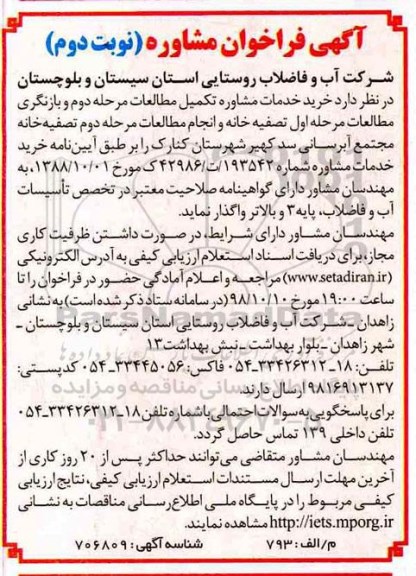 آگهی فراخوان مشاوره (نوبت دوم)
شرکت آب و فاضلاب روستایی استان سیستان و بلوچستان
در نظر دارد خرید خدمات مشاوره تکمیل مطالعات مرحله دوم و بازنگری
مطالعات مرحله اول تصفیه خانه و انجام مطالعات مرحله دوم تصفیه خانه
مجتمع آبرسانی سد کهیر شهرستان کنارک را بر طبق آیین‌نامه خرید
خدمات مشاوره شماره ۱۹۳۵۴۲/ت/۴۲۹۸۶ک مورخ ۱۳۸۸/۱۰/۰۱، به
مهندسان مشاور دارای گواهینامه صلاحیت معتبر در تخصص تأسیسات
آب و فاضلاب، پایه ۳ و بالاتر واگذار نماید.
مهندسان مشاور دارای شرایط، در صورت داشتن ظرفیت کاری
مجاز، برای دریافت اسناد استعلام ارزیابی کیفی به آدرس الکترونیکی
(www.setadiran.ir) مراجعه و اعلام آمادگی حضور در فراخوان را تا
ساعت ۱۹:۰۰ مورخ ۹۸/۱۰/۱۰ (در سامانه ستاد ذکر شده است) به نشانی
زاهدان - شرکت آب و فاضلاب روستایی استان سیستان و بلوچستان -
شهر زاهدان - بلوار بهداشت - نبش بهداشت ۱۳
تلفن: ۱۸-۳۳۴۲۶۳۱۲-۰۵۴ فاکس: ۳۳۴۴۵۰۵۶-۰۵۴ کدپستی:
۹۸۱۶۹۱۳۱۳۷ ارسال دارند.
برای پاسخگویی به سوالات احتمالی با شماره تلفن ۱۸-۳۳۴۲۶۳۱۲-۰۵۴
تلفن داخلی ۱۳۹ تماس حاصل گردد.
مهندسان مشاور متقاضی می‌توانند حداکثر پس از ۲۰ روز کاری از
آخرین مهلت ارسال مستندات استعلام ارزیابی کیفی، نتایج ارزیابی
کیفی مربوط را در پایگاه ملی اطلاع رسانی مناقصات به نشانی
http://iets.mporg.ir مشاهده نمایند.
م/الف: ۷۹۳ شناسه آگهی: ۷۰۶۸۰۹
ParsNamadData